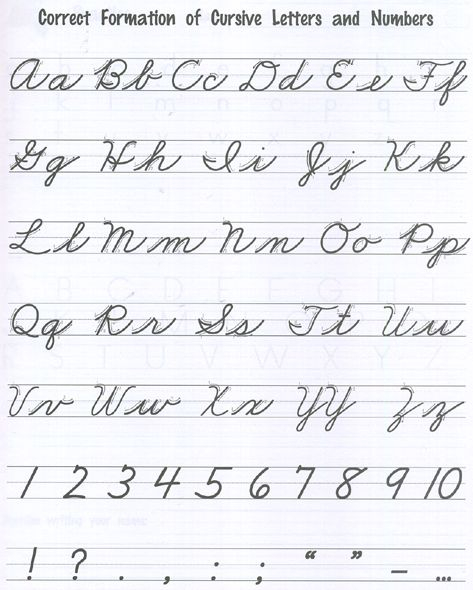 Correct Formation of Cursive Letters and Numbers
Aa Bb Cc Dd Ee Ff
Gg Hh Ii Jj Kk
Ll Mm Nn Oo Pp
Qq Rr Ss Tt Uu
Vv Ww Xx YY Zz
1 2 3 4 5 6 7 8 9 10
! ? . , : ; “ ” – ...